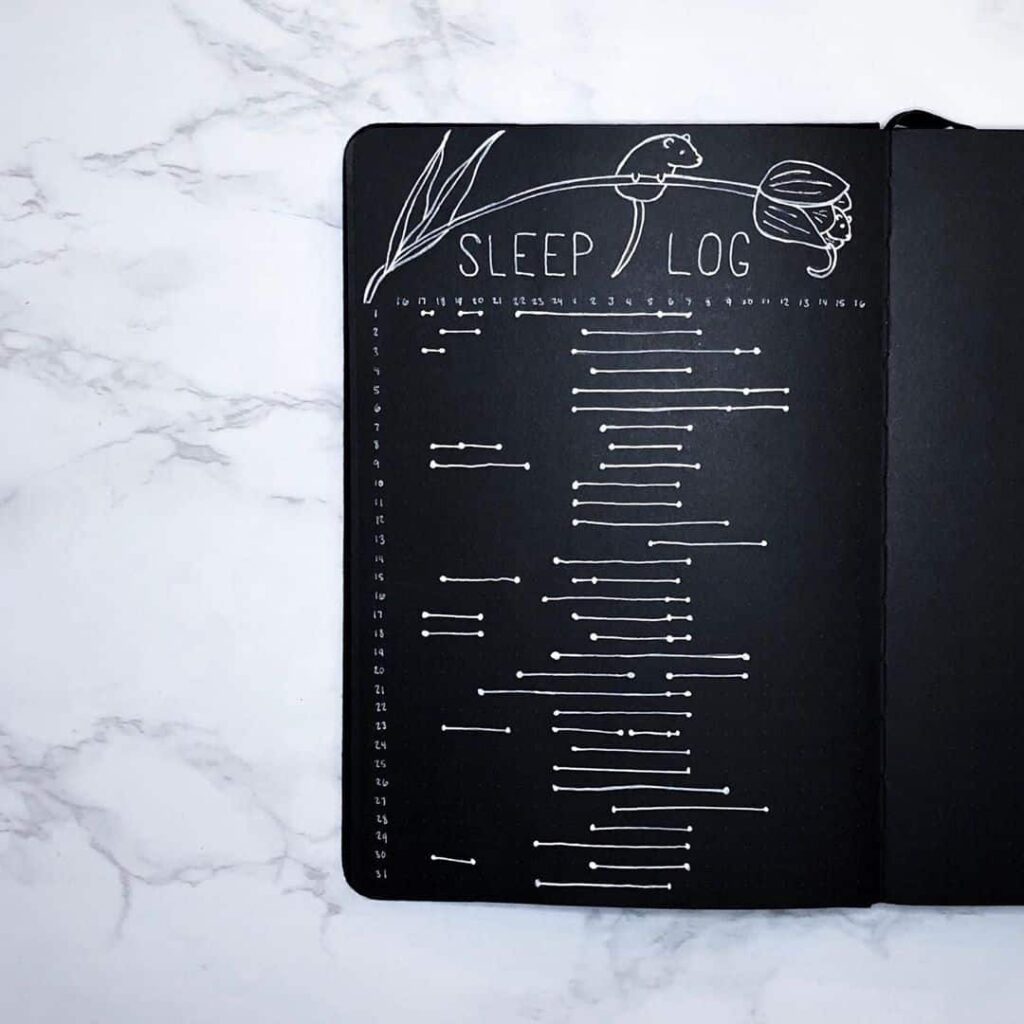 SLEEP LOG
16 17 18 19 20 21 22 23 24 1 2 3 4 5 6 7 8 9 10 11 12 13 14 15 16
1
2
3
4
5
6
7
8
9
10
11
12
13
14
15
16
17
18
19
20
21
22
23
24
25
26
27
28
29
30
31